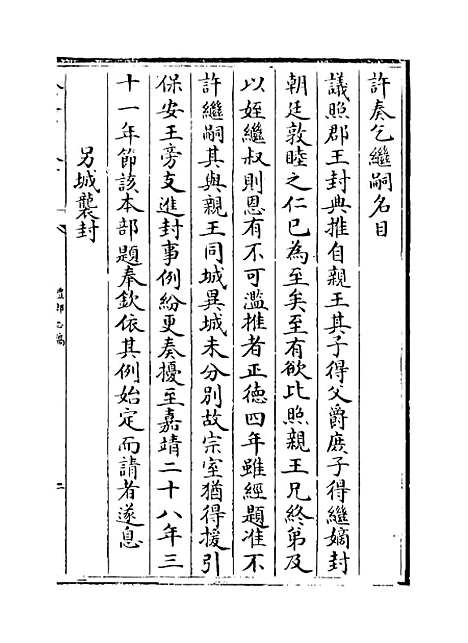 許奏乞繼嗣名目
議照郡王封典推自親王其子得父爵庶子得繼嫡封
朝廷敦睦之仁已為至矣至有欲比照親王兄終弟及
以姪繼叔則恩有不可濫推者正德四年雖經題准不
許繼嗣其與親王同城異城未分別故宗室猶得援引
保安王旁支進封事例紛更奏擾至嘉靖二十八年三
十一年節該本部題奉欽依其例始定而請者遂息
另城襲封
禮部志稿
二